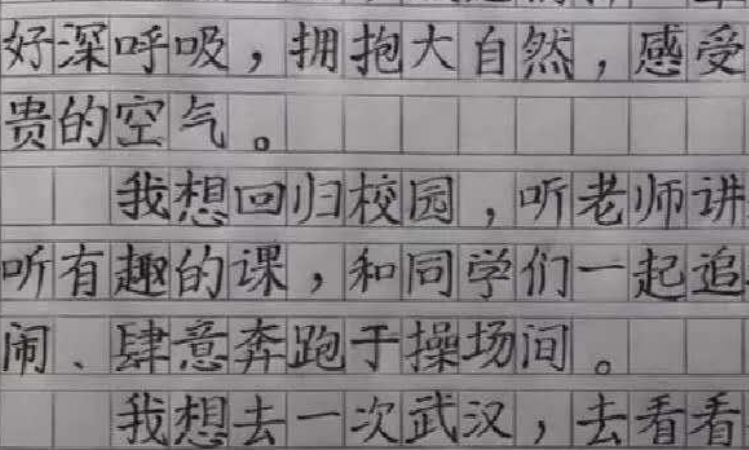 好深呼吸，拥抱大自然，感受
贵的空气。
我想回归校园，听老师讲
听有趣的课，和同学们一起追
闹、肆意奔跑于操场间。
我想去一次武汉，去看看